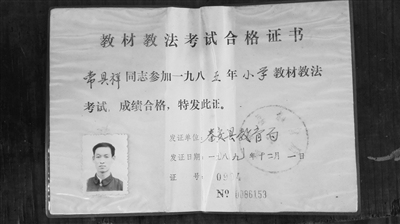 教材教法考试合格证书
常具祥同志参加一九八三年小学教材教法
考试,成绩合格,特发此证。
发证单位:秦安县教育局
发证日期:一九八 年十二月一日
证 号:
№ 0386153